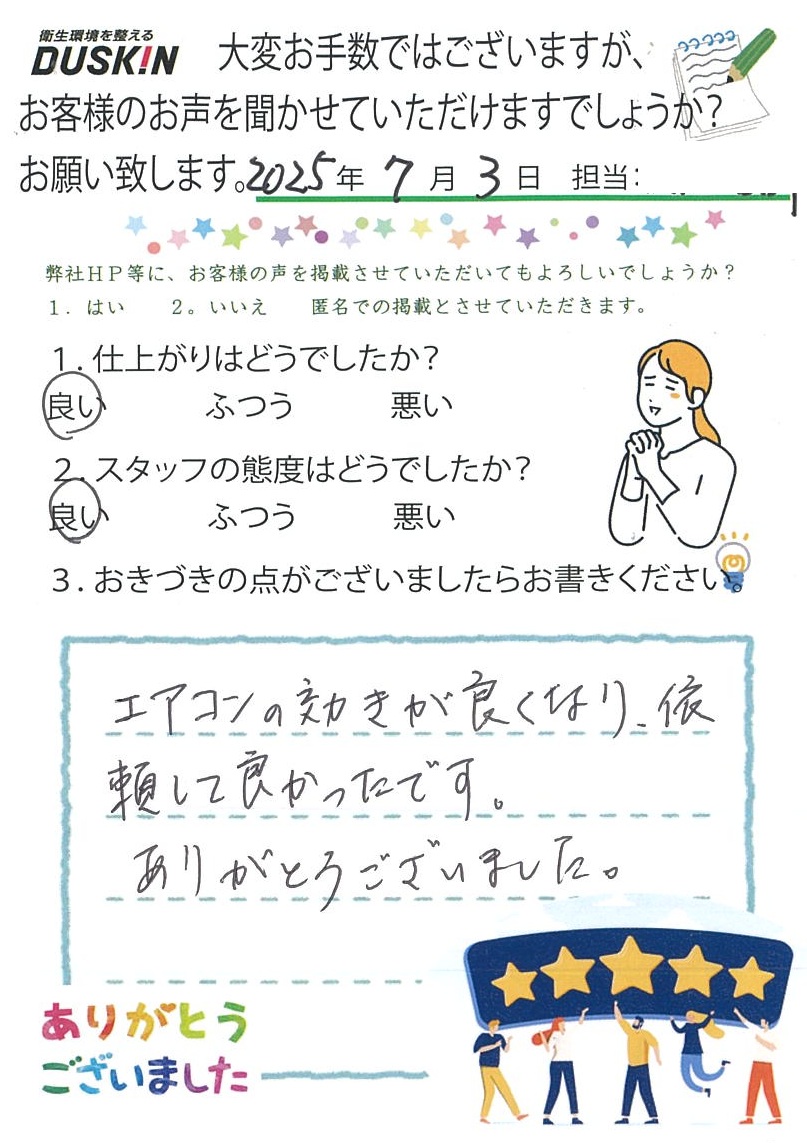 衛生環境を整える
DUSKIN 大変お手数ではございますが、
お客様のお声を聞かせていただけますでしょうか?
お願い致します。2025年 7月 3日 担当:
弊社HP等に、お客様の声を掲載させていただいてもよろしいでしょうか?
1. はい 2。いいえ 匿名での掲載とさせていただきます。
1. 仕上がりはどうでしたか?
良い ふつう 悪い
2. スタッフの態度はどうでしたか?
良い ふつう 悪い
3. おきづきの点がございましたらお書きください。
エアコンの効きが良くなり、依
頼して良かったです。
ありがとうございました。
ありがとう
ございました